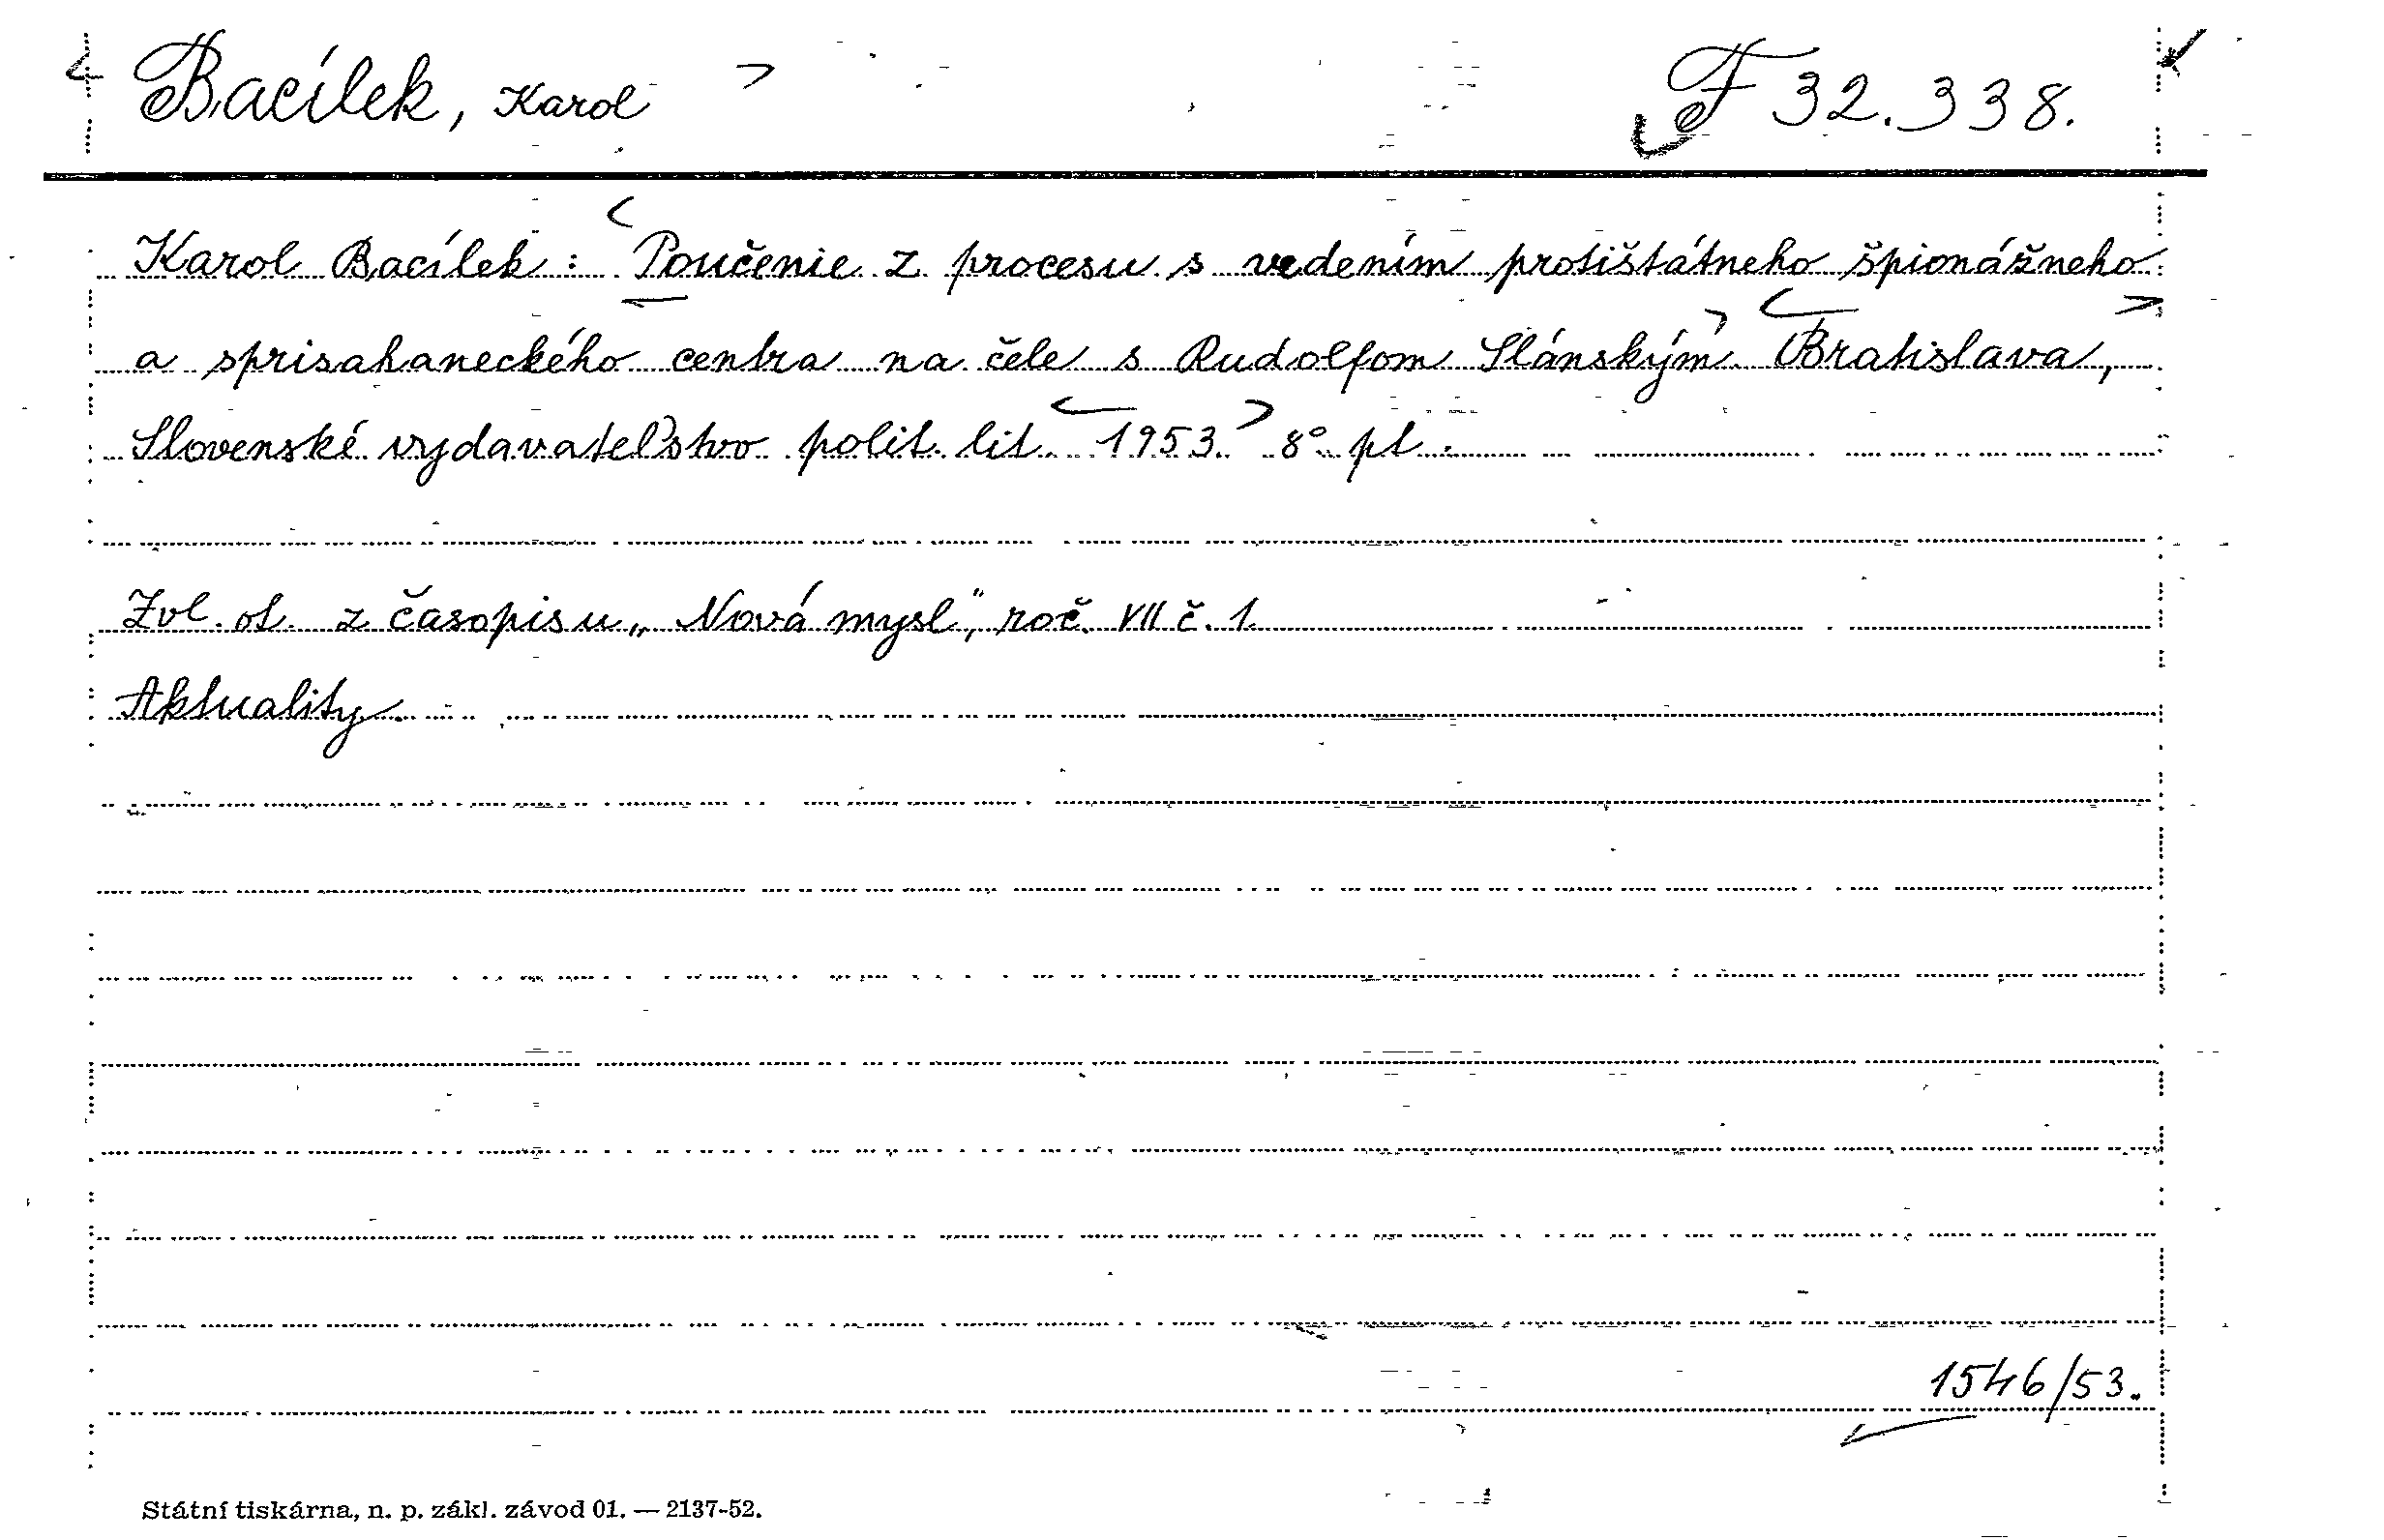 Bacílek, Karol F 32.338.
Karol Bacílek: Poučenie z procesu s vedením protištátneho špionážneho
a sprisahaneckého centra na čele s Rudolfom Slánským. Bratislava,
Slovenské vydavateľstvo polit. lit. 1953. 8° pt.
Zvl. ot. z časopisu „Nová mysl", roč. VII č. 1.
Aktuality.
1546/53.
Státní tiskárna, n. p. zákl. závod 01. — 2137-52.